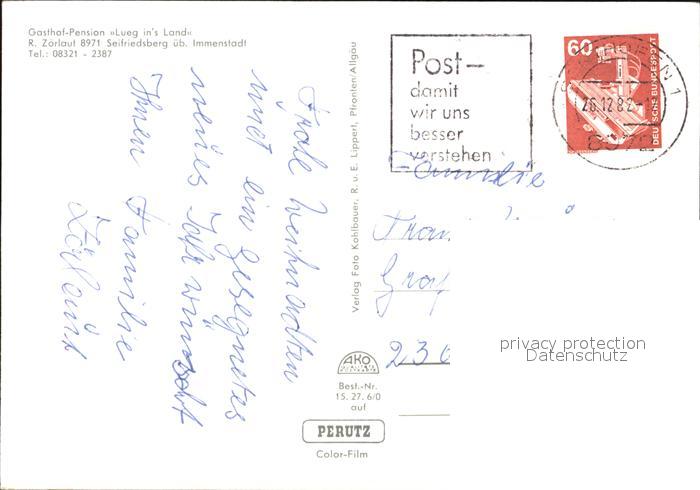 Gasthof-Pension »Lueg in's Land«
R. Zörlaut 8971 Seifriedsberg üb. Immenstadt
Tel.: 08321 - 2387
Frohe Weihnachten
und ein gesegnetes
neues Jahr wünscht
Ihnen Familie
Zörlaut
Verlag Foto Kohlbauer, R. u. E. Lipperl, Pfronten/Allgäu
AKO
Best.-Nr.
15. 27. 6/0
auf
PERUTZ
Color-Film
Post–
damit
wir uns
besser
verstehen
60
DEUTSCHE BUNDESPOST
26.12.82
Familie
Fran
Graf
236
privacy protection
Datenschutz